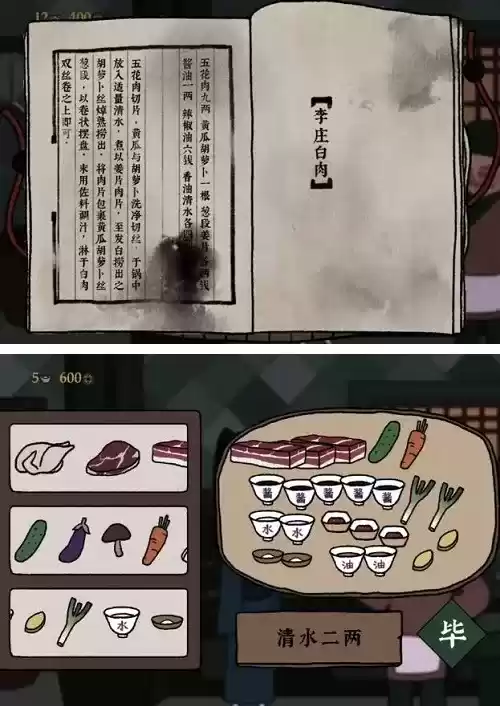 12 400
【李庄白肉】
五花肉九两 黄瓜胡萝卜一根 葱段姜片各两钱
酱油一两 辣椒油六钱 香油清水各
五花肉切片,黄瓜与胡萝卜洗净切丝,于锅中
放入适量清水,煮以姜片肉片,至发白捞出之
胡萝卜丝焯熟捞出,将肉片包裹黄瓜胡萝卜丝
葱段,以卷状摆盘,末用佐料调汁,淋于白肉
双丝卷之上即可.
5 600
酱 酱 酱 酱 酱
水 水
油 油
水
清水二两
毕